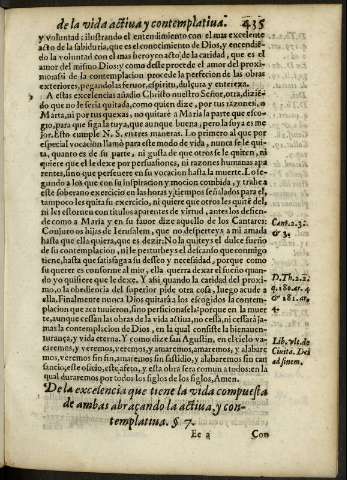 de la vida actiua y contemplatiua. 435
y voluntad; ilustrando el entendimiento con el mas excelente
acto de la sabiduria, que es el conocimiento de Dios, y encendiẽ-
do la voluntad con el mas feroyen acto de la caridad, que es el
amor del mismo Dios: y como deste procede el amor del proxi-
mo assi de la contemplacion procede la perfecion de las obras
exteriores, pegandolas feruor, espiritu, dulçura y entereza.
A estas excelencias añadio Christo nuestro Señor, otra, diziẽ-
do que no le seria quitada, como quien dize, por tus razones, o
Marta, ni por tus quexas, no quitarè a Maria la parte que esco-
gio, para que siga la tuya, que aunque buena, pero la suya es me
jor. Esto cumple N. S. en tres maneras. Lo primero al que por
especial vocacion llamò para este modo de vida, nunca se le qui-
ta, quanto es de su parte, ni gusta de que otros se le quiten, ni
quiere que el le dexe por persuasiones, ni razones humanas apa
rentes, sino que perseuere en su vocacion hasta la muerte. Lo se-
gundo a los que con su inspiracion y mocion combida, y trahe a
este soberano exercicio en las horas y tiempos señalados para el,
tampoco les quita su exercicio, ni quiere que otros les quitẽ del,
ni les estoruen con titulos aparentes de virtud, antes los defien-
de como a Maria y en su fauor dize aquello de los Cantares:
Conjuro os hijas de Ierusalem, que no desperteys a mi amada
hasta que ella quiera, que es dezir: No la quiteys el dulce sueño
de su contemplacion, ni le perturbeys el descanso que conmigo
tiene, hasta que satisfaga a su desseo y necessidad, porque como
su querer es conforme al mio, ella querra dexar el sueño quan-
do yo quisiere que le dexe. Y assi quando la caridad del proxi-
mo, o la obediencia del superior pide otra cosa, luego acude a
ella. Finalmente nunca Dios quitarà a los escogidos la contem-
placion que acà tuuieron, sino perficionarsela: porque en la muer
te, aunque cessan las obras de la vida actiua, no cessa, ni cessarà ja-
mas la contemplacion de Dios, en la qual consiste la bienauen-
turança, y vida eterna. Y como dize san Agustin, en el cielo va-
caremos, y veremos, veremos, y amaremos, amaremos, y alabare-
mos, veremos sin fin, amaremos sin fastidio, y alabaremos sin can
sancio, este oficio, este afeto, y esta obra sera comun a todos: en la
qual duraremos por todos los siglos de los siglos, Amen.
De la excelencia que tiene la vida compuesta
de ambas abraçando la actiua, y con-
templatiua. § 7.
Ee 2 Con
Cant. 2. 3.
& 3.
D. Th. 2. 2.
q. 180. ar. 4
& 181. ar.
4.
Lib. vlt. de
Ciuita. Dei
ad finem.